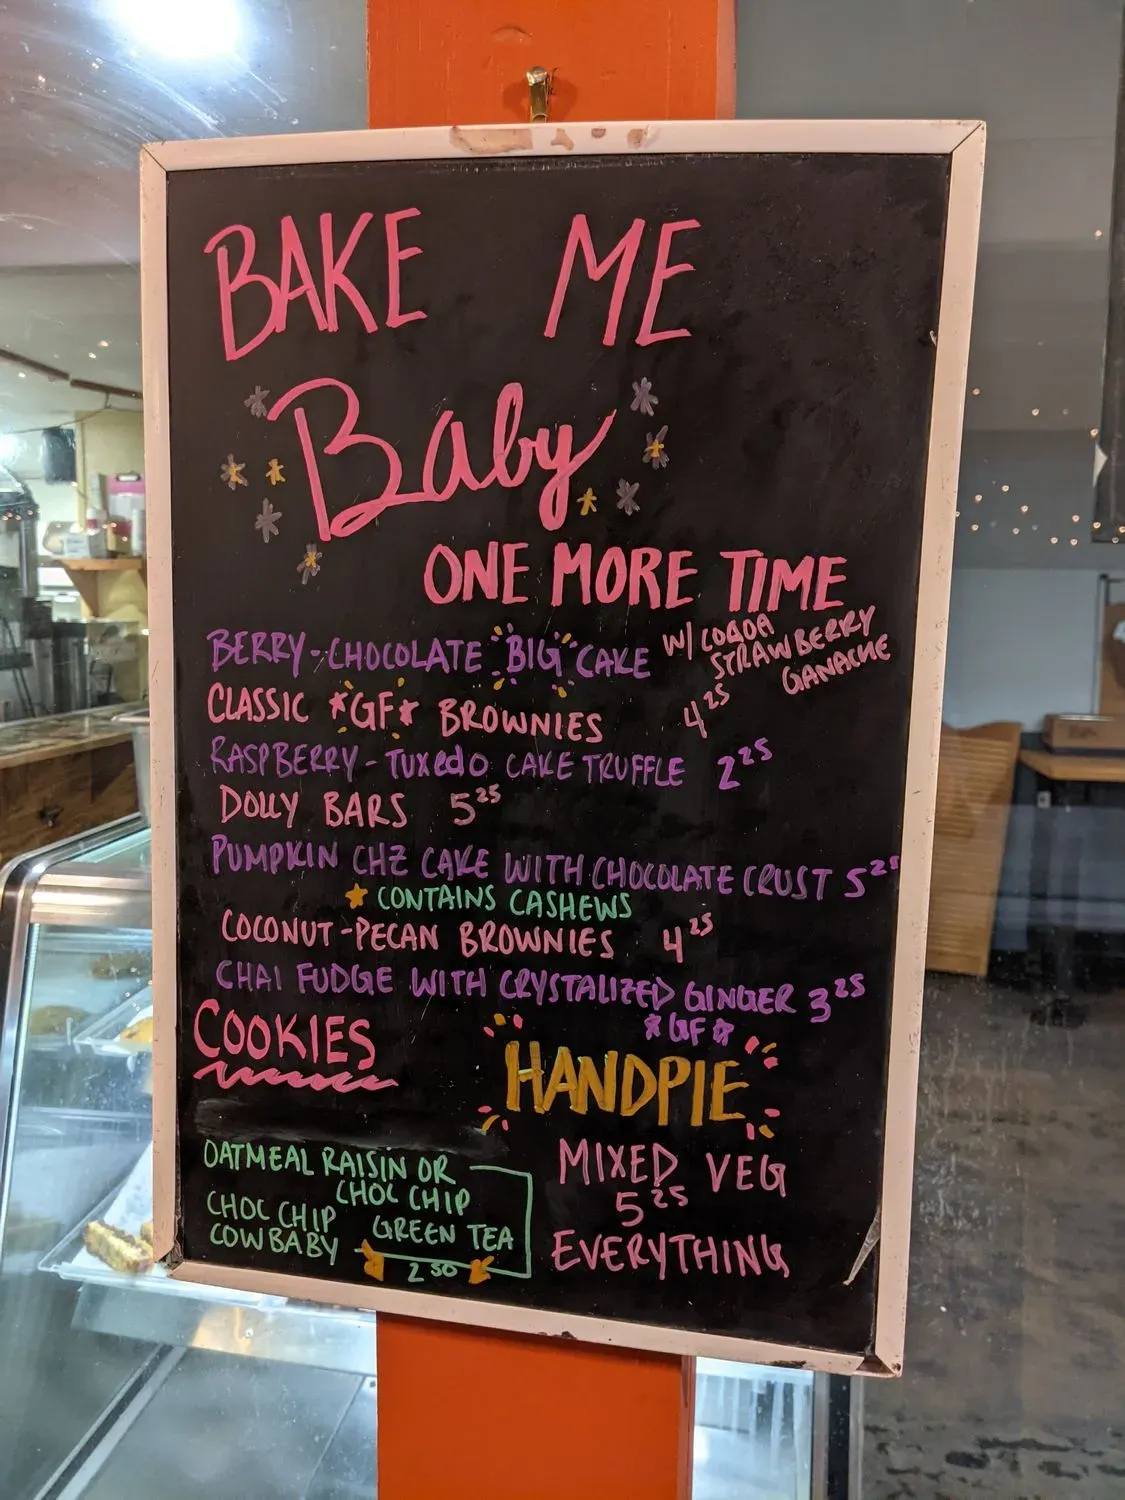 BAKE ME
Baby
ONE MORE TIME
BERRY-CHOCOLATE "BIG" CAKE W/ COCOA
STRAWBERRY
GANACHE
CLASSIC *GF* BROWNIES 4 25
RASPBERRY-TUXEDO CAKE TRUFFLE 2 25
DOLLY BARS 5 25
PUMPKIN CHZ CAKE WITH CHOCOLATE CRUST 5 25
CONTAINS CASHEWS
COCONUT-PECAN BROWNIES 4 25
CHAI FUDGE WITH CRYSTALIZED GINGER 3 25
*GF*
COOKIES
OATMEAL RAISIN OR
CHOC CHIP
CHOC CHIP GREEN TEA
COWBABY
2 50
HANDPIE
MIXED VEG
5 25
EVERYTHING